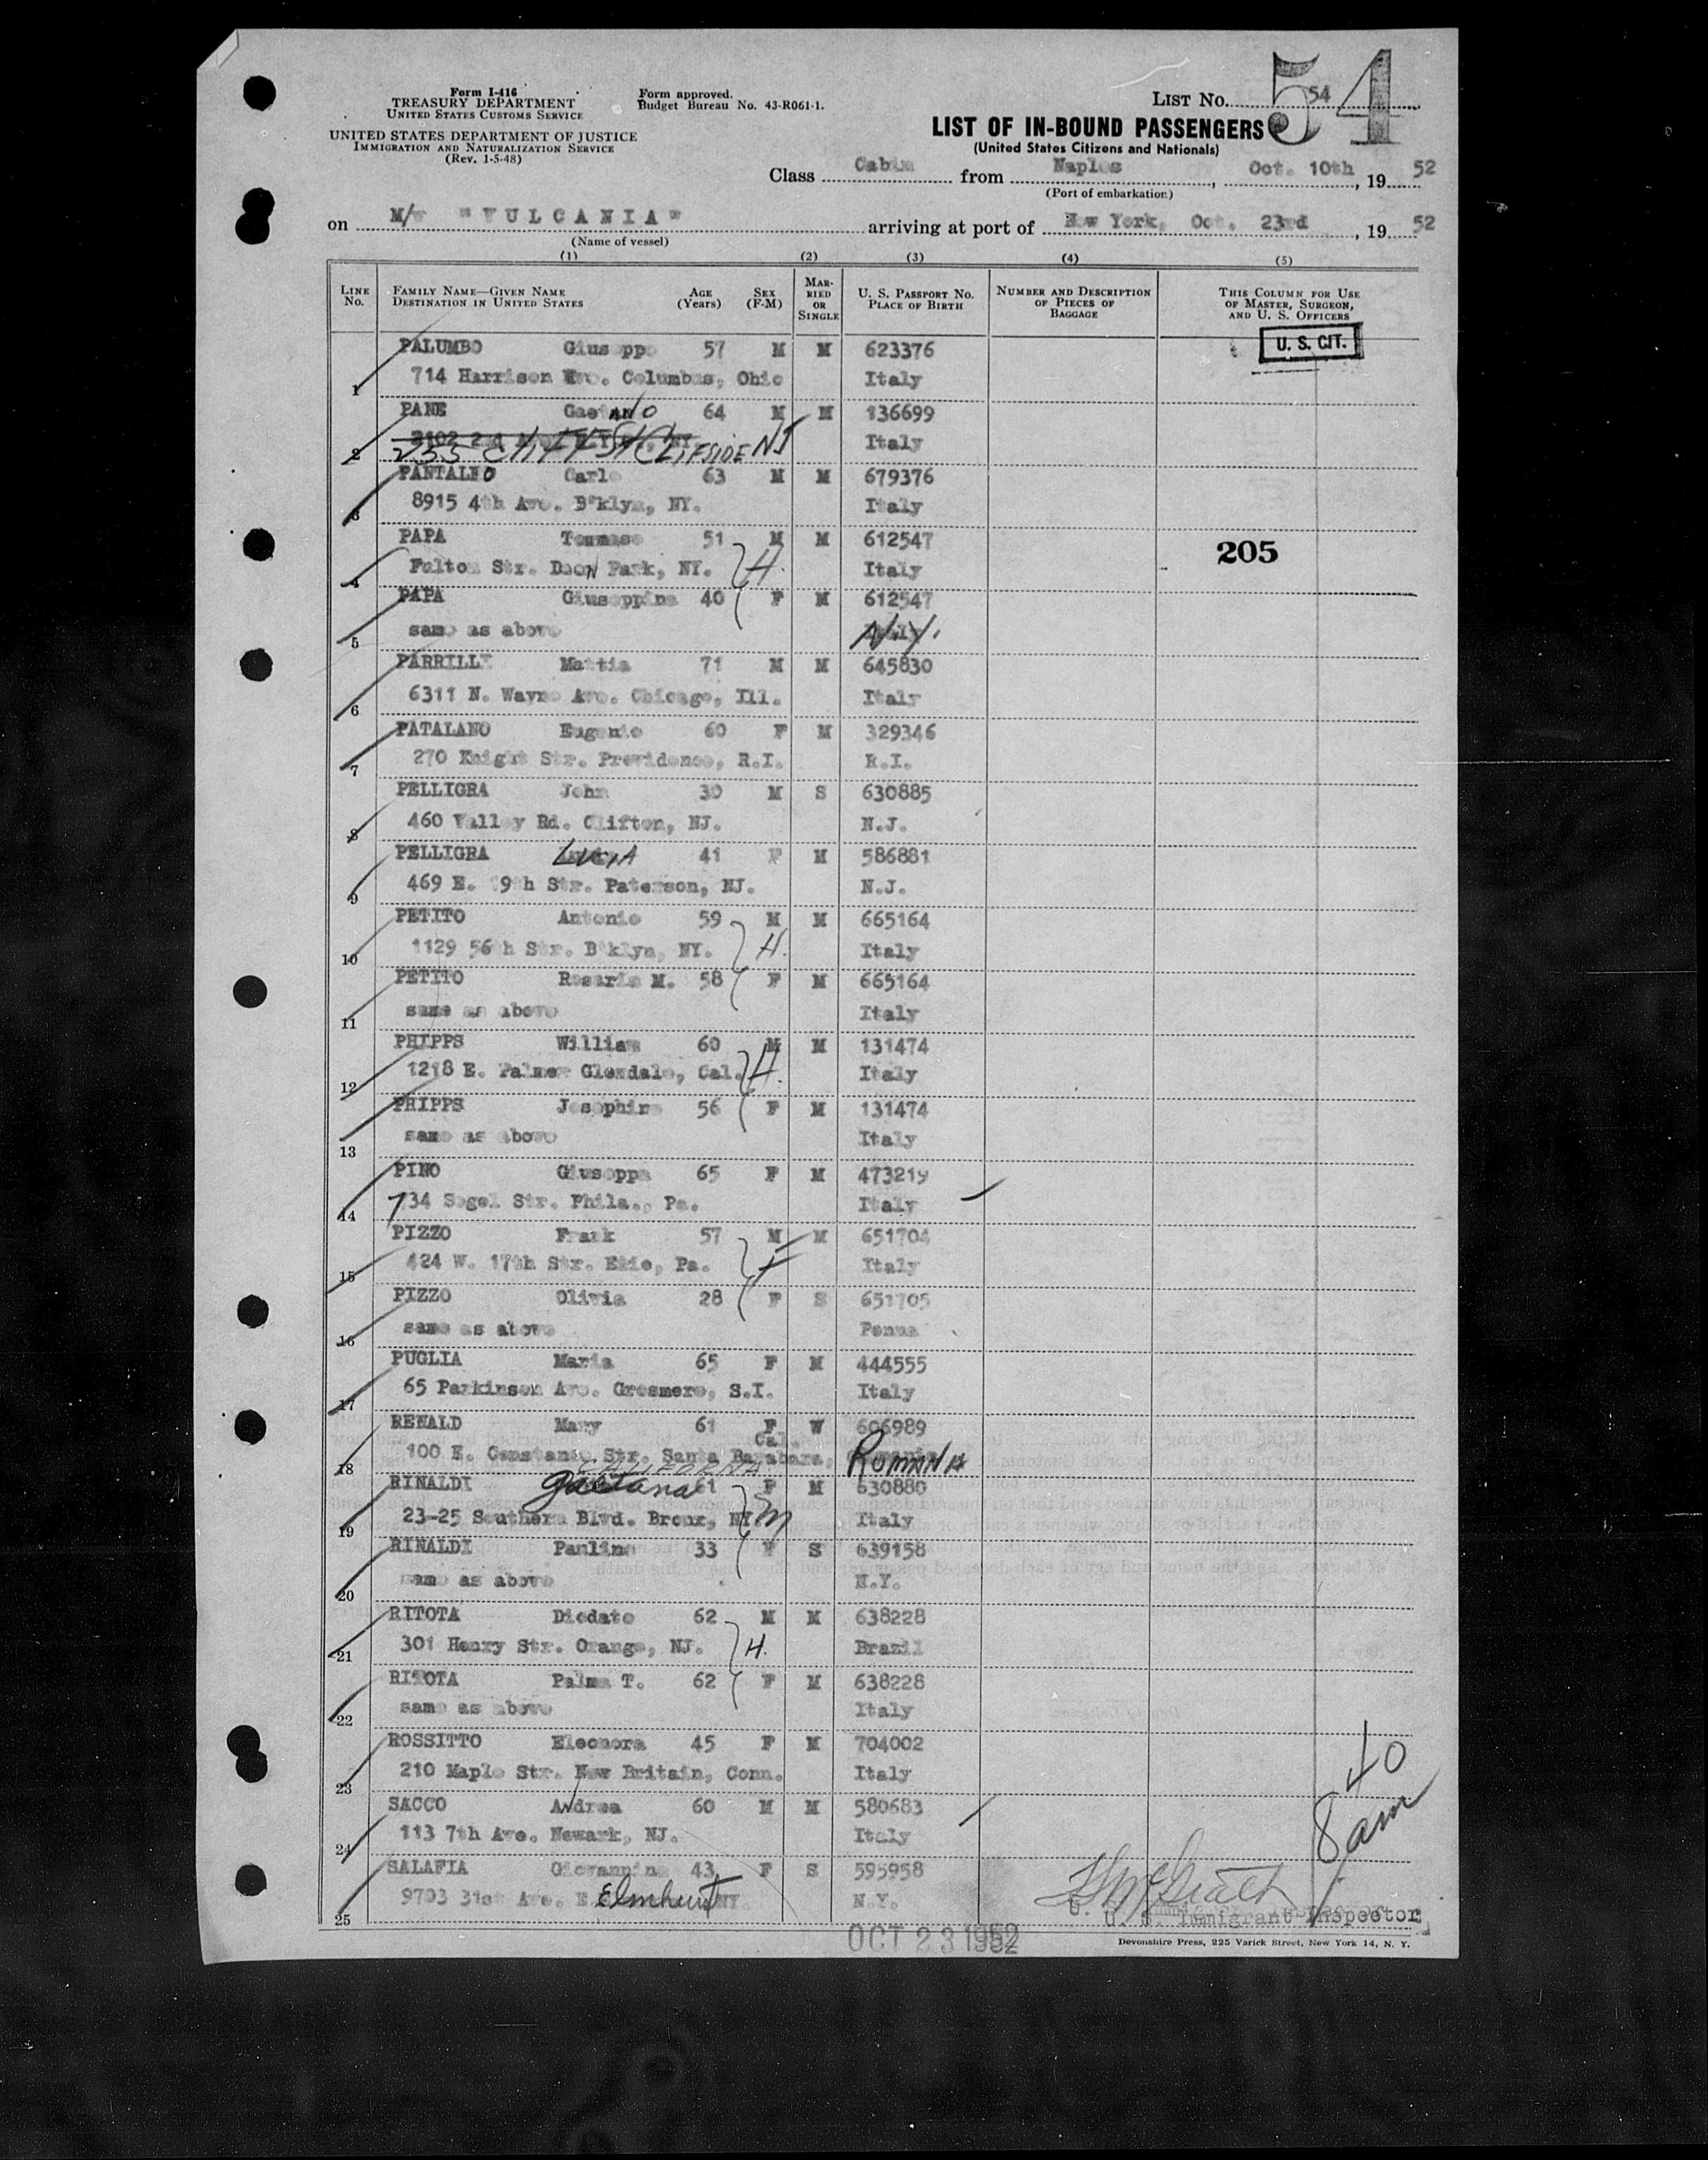 Form I-416
TREASURY DEPARTMENT
UNITED STATES CUSTOMS SERVICE
UNITED STATES DEPARTMENT OF JUSTICE
IMMIGRATION AND NATURALIZATION SERVICE
(Rev. 1-5-48)
Form approved.
Budget Bureau No. 43-R061-1.
LIST No. 54
54
LIST OF IN-BOUND PASSENGERS
(United States Citizens and Nationals)
Class Cabin from Naples, Oct. 10th, 19 52
(Port of embarkation)
on M/v "VULCANIA" arriving at port of New York, Oct. 23rd, 19 52
(Name of vessel)
(1) (2) (3) (4) (5)
LINE No. FAMILY NAME—GIVEN NAME DESTINATION IN UNITED STATES AGE (Years) SEX (F-M) MARRIED OR SINGLE U. S. PASSPORT No. PLACE OF BIRTH NUMBER AND DESCRIPTION OF PIECES OF BAGGAGE THIS COLUMN FOR USE OF MASTER, SURGEON, AND U. S. OFFICERS
U. S. CIT.
PALUMBO Giuseppe 57 M M 623376
1 714 Harrison Ave. Columbus, Ohio Italy
PANE Gaetano 64 M M 136699
2 233 Cliff St Clifside NJ Italy
PANTALEO Carlo 63 M M 679376
3 8915 4th Ave. B'klyn, NY. Italy
PAPA Tommaso 51 M M 612547
205
4 Fulton Str. Deen Park, NY. H. Italy
PAPA Giuseppina 40 F M 612547
5 same as above N.Y.
PARRILLI Mattia 71 M M 645830
6 6311 N. Wayne Ave. Chicago, Ill. Italy
PATALANO Eugenio 60 F M 329346
7 270 Knight Str. Providence, R.I. R.I.
PELLIGRA John 30 M S 630885
8 460 Valley Rd. Clifton, NJ. N.J.
PELLIGRA Lucia 41 F M 586881
9 469 E. 19th Str. Paterson, NJ. N.J.
PETITO Antonio 59 M M 665164
10 1129 56th Str. B'klyn, NY. H. Italy
PETITO Rosaria M. 58 F M 665164
11 same as above Italy
PHIPPS William 60 M M 131474
12 1218 E. Palmer Glendale, Cal. H. Italy
PHIPPS Josephine 56 F M 131474
13 same as above Italy
PINO Giuseppa 65 F M 473219
14 734 Segel Str. Phila., Pa. Italy
PIZZO Frank 57 M M 651704
15 424 W. 17th Str. Erie, Pa. F Italy
PIZZO Olivia 28 F S 651705
16 same as above Penna
PUGLIA Maria 65 F M 444555
17 65 Parkinson Ave. Grasmere, S.I. Italy
RENALD Mary 61 F W 606989
Cal.
18 100 E. Constance Str. Santa Barabara, ROMANIA
CALIFORNIA
RINALDI Gaetana 61 F M 630880
19 23-25 Southern Blvd. Bronx, NY. M Italy
RINALDI Pauline 33 F S 639158
20 same as above N.Y.
RITOTA Diodato 62 M M 638228
21 301 Henry Str. Orange, NJ. H. Brazil
RITOTA Palma T. 62 F M 638228
22 same as above Italy
ROSSITTO Eleonora 45 F M 704002
23 210 Maple Str. New Britain, Conn. Italy
SACCO Andrea 60 M M 580683
24 113 7th Ave. Newark, NJ. Italy
8 40 am
SALAFIA Giovannina 43 F S 595958
25 9703 31st Ave. Elmhurst NY. N.Y.
U. S. Immigrant Inspector
OCT 23 1952
Devonshire Press, 225 Varick Street, New York 14, N. Y.